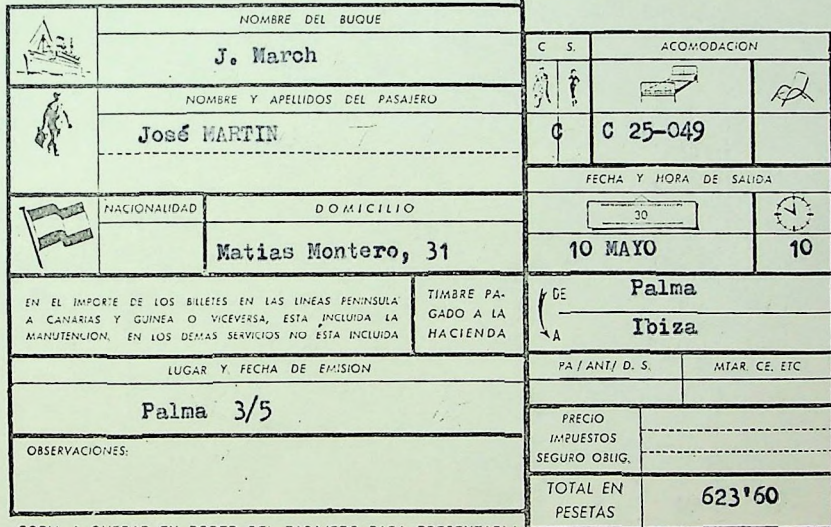 NOMBRE DEL BUQUE
J. March
NOMBRE Y APELLIDOS DEL PASAJERO
José MARTIN
NACIONALIDAD
DOMICILIO
Matias Montero, 31
EN EL IMPORTE DE LOS BILLETES EN LAS LINEAS PENINSULA
A CANARIAS Y GUINEA O VICEVERSA, ESTA INCLUIDA LA
MANUTENCION, EN LOS DEMAS SERVICIOS NO ESTA INCLUIDA
TIMBRE PA-
GADO A LA
HACIENDA
LUGAR Y FECHA DE EMISION
Palma 3/5
OBSERVACIONES:
C S.
ACOMODACION
C
C 25-049
FECHA Y HORA DE SALIDA
30
10 MAYO
10
DE
Palma
A
Ibiza
PA / ANT / D. S.
MTAR. CE, ETC
PRECIO
IMPUESTOS
SEGURO OBLIG.
TOTAL EN
PESETAS
623'60